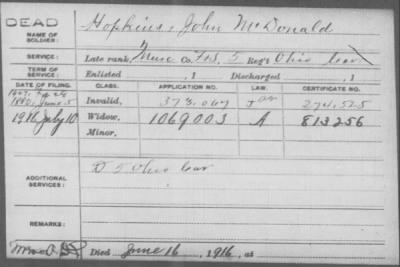 DEAD
NAME OF SOLDIER: Hopkins, John McDonald
SERVICE: Late rank, Musc Co. F&S, 5 Reg't Ohio Cav
TERM OF SERVICE: Enlisted , 1 Discharged , 1
DATE OF FILING. CLASS. APPLICATION NO. LAW. CERTIFICATE NO.
1880, June 5 Invalid, 373.067 274.525
1916 July 10 Widow, 1069003 A 813256
Minor,
ADDITIONAL SERVICES: D 5 Ohio Cav
REMARKS:
Died June 16, 1916, at